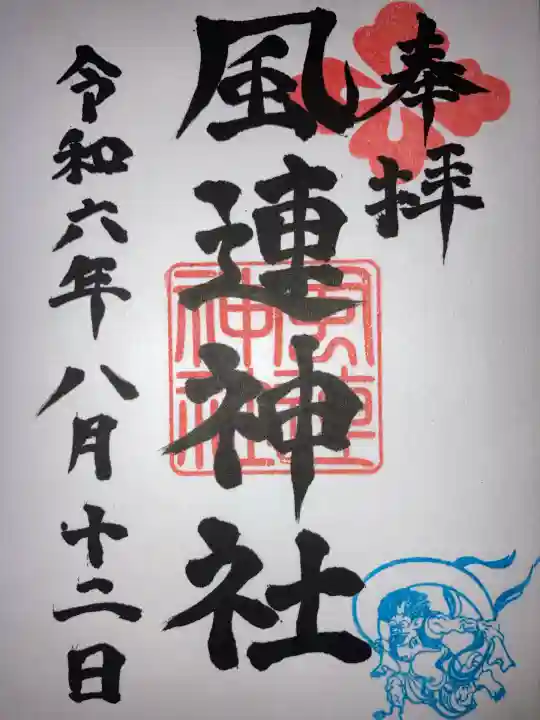 奉拝
風連神社
風連
神社
令和六年八月十二日